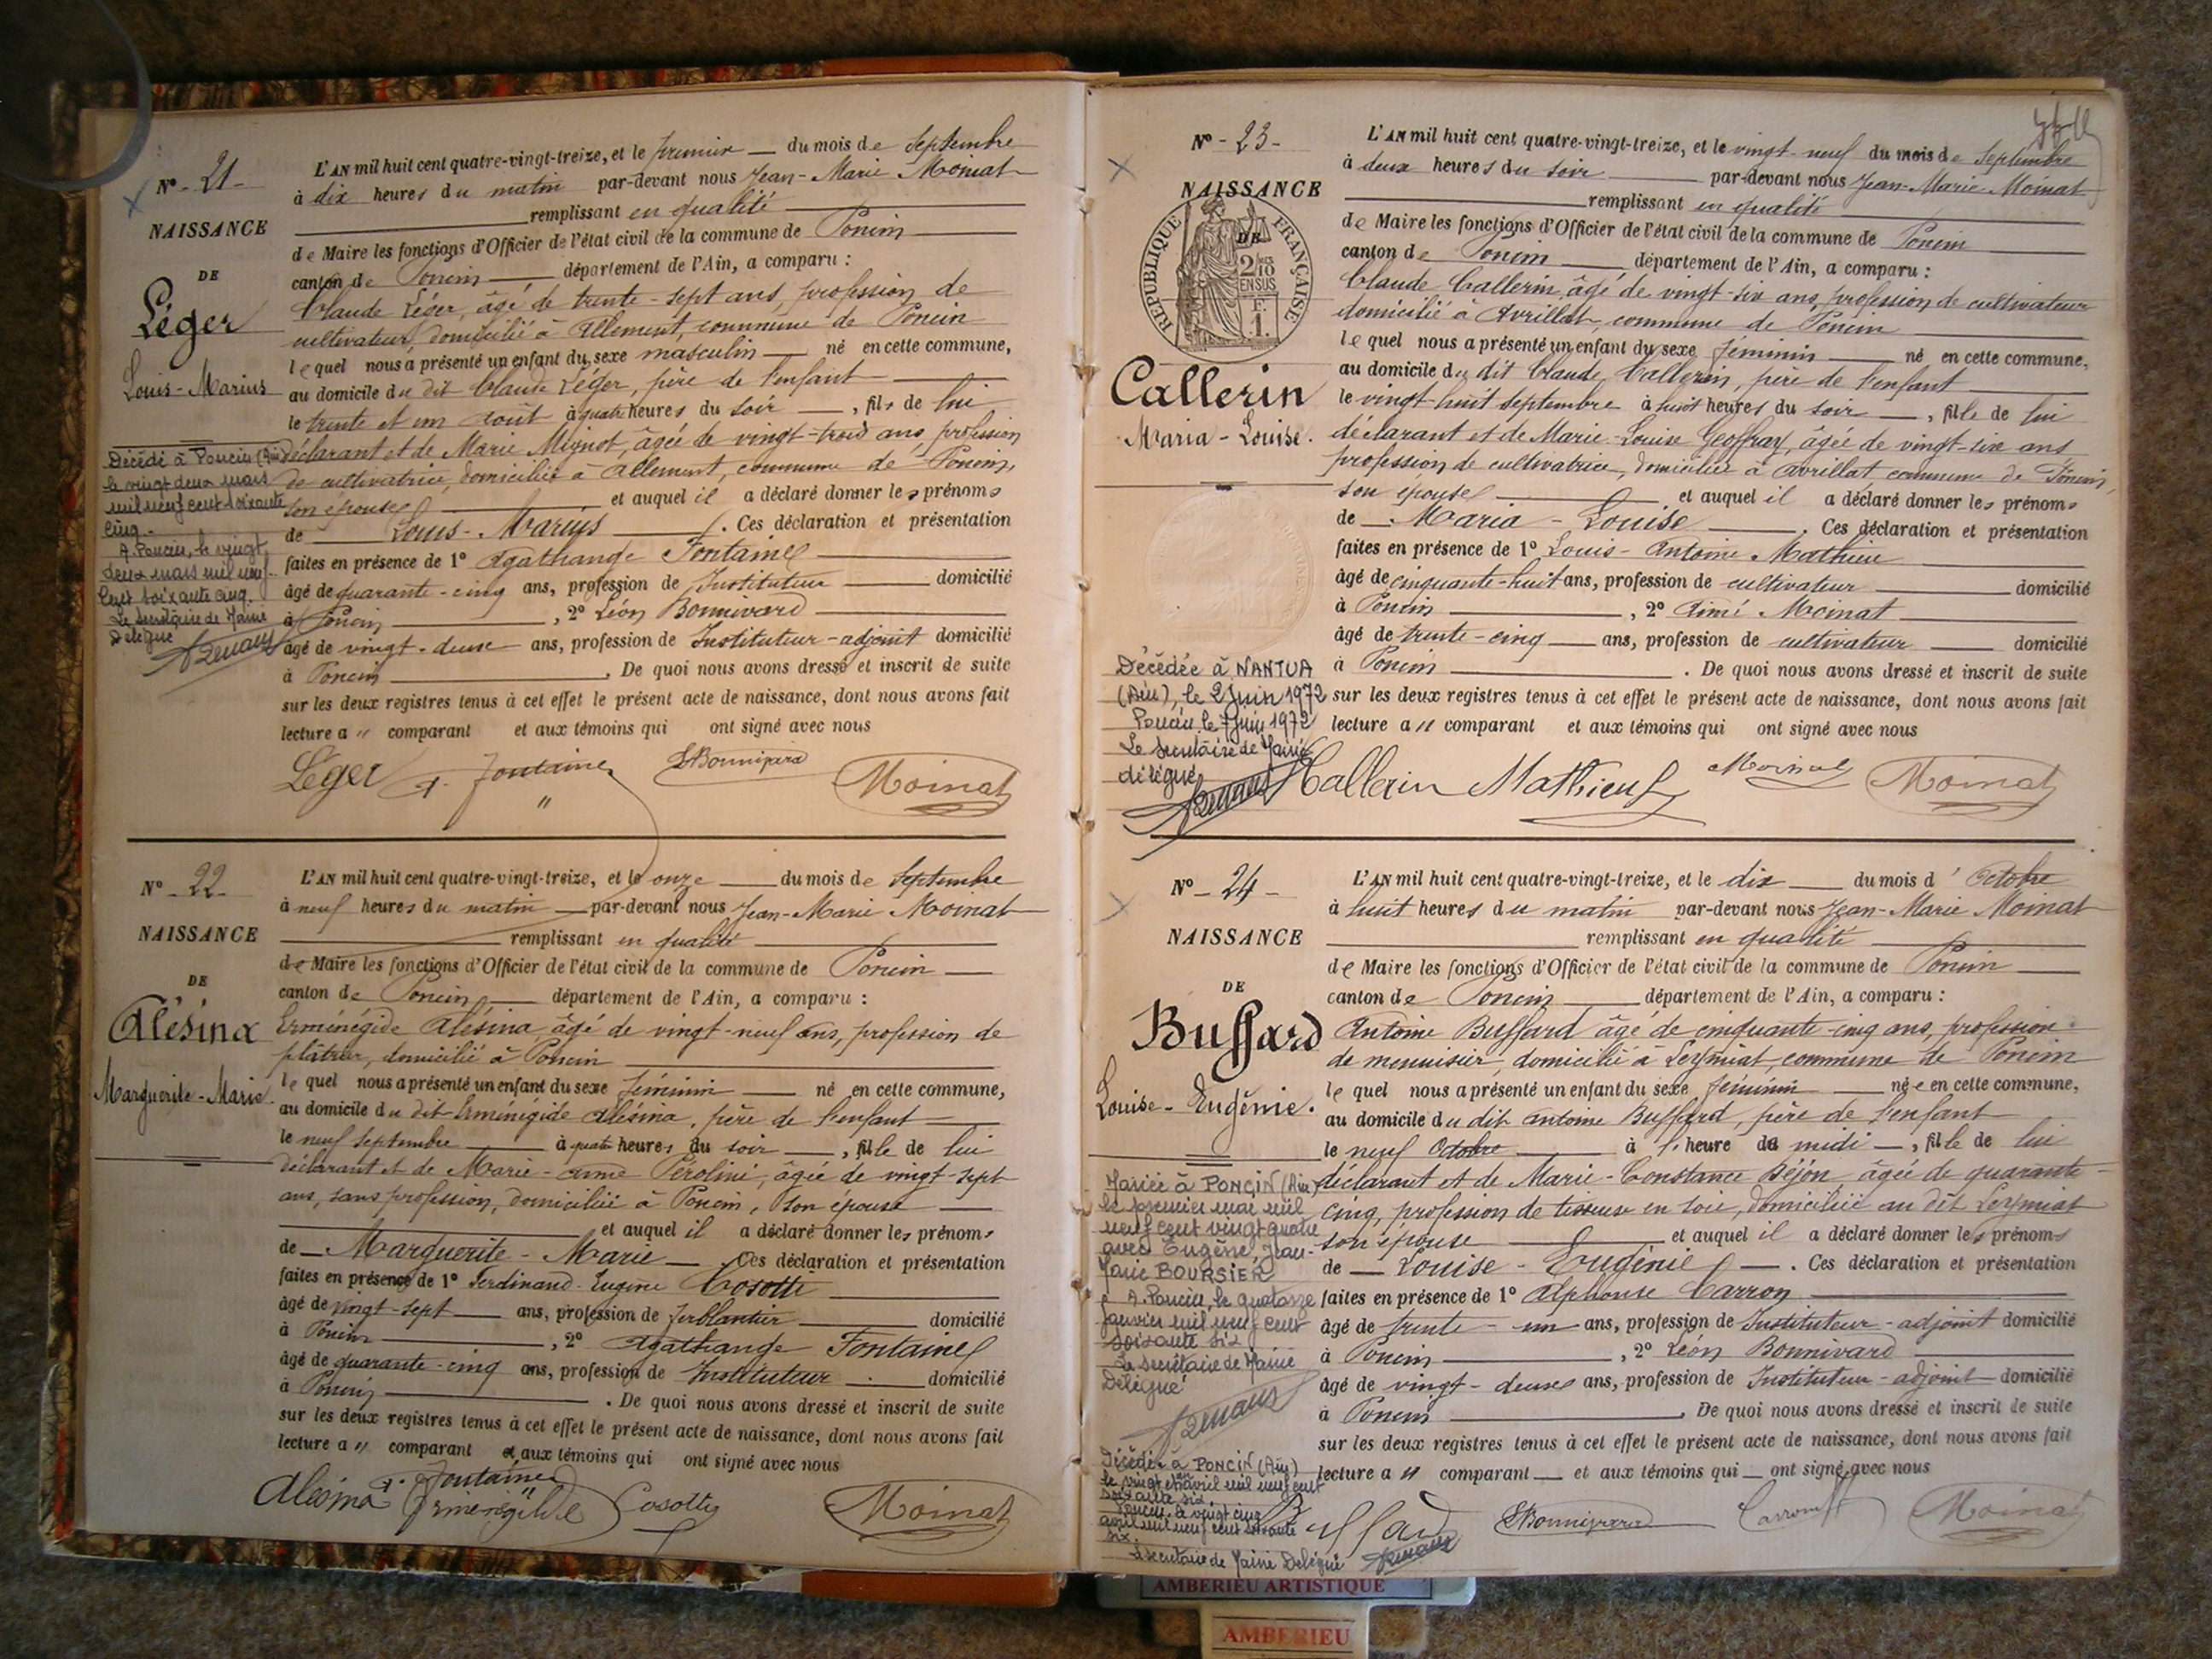 N° - 21 -
NAISSANCE
DE
Léger
Louis-Marius
Décédé à Poncin (Ain)
le vingt deux mars
mil neuf cent soixante
cinq.
A Poncin, le vingt
deux mars mil neuf
cent soixante cinq.
Le Secrétaire de Mairie
Délégué
L'AN mil huit cent quatre-vingt-treize, et le premier du mois de Septembre
à dix heures du matin par-devant nous Jean-Marie Moinat
remplissant en qualité
de Maire les fonctions d'Officier de l'état civil de la commune de Poncin
canton de Poncin département de l'Ain, a comparu :
Claude Léger, âgé de trente-sept ans, profession de
cultivateur, domicilié à Allement, commune de Poncin
lequel nous a présenté un enfant du sexe masculin né en cette commune,
au domicile du dit Claude Léger, père de l'enfant
le trente et un août à quatre heures du soir , fils de lui
déclarant et de Marie Mignot, âgée de vingt-trois ans, profession
de cultivatrice, domiciliée à Allement, commune de Poncin,
son épouse et auquel il a déclaré donner les prénoms
de Louis-Marius . Ces déclaration et présentation
faites en présence de 1° Agathange Fontaine
âgé de quarante-cinq ans, profession de Instituteur domicilié
à Poncin , 2° Léon Bonnivard
âgé de vingt-deux ans, profession de Instituteur-adjoint domicilié
à Poncin . De quoi nous avons dressé et inscrit de suite
sur les deux registres tenus à cet effet le présent acte de naissance, dont nous avons fait
lecture a " comparant et aux témoins qui ont signé avec nous
Léger A. Fontaine LBonnivard Moinat
N° - 22 -
NAISSANCE
DE
Alésina
Marguerite-Marie
L'AN mil huit cent quatre-vingt-treize, et le onze du mois de Septembre
à neuf heures du matin par-devant nous Jean-Marie Moinat
remplissant en qualité
de Maire les fonctions d'Officier de l'état civil de la commune de Poncin
canton de Poncin département de l'Ain, a comparu :
Erménégide Alésina âgé de vingt-neuf ans, profession de
plâtrier, domicilié à Poncin
lequel nous a présenté un enfant du sexe féminin né en cette commune,
au domicile du dit Erménégide Alésina, père de l'enfant
le neuf Septembre à quatre heures du soir , fille de lui
déclarant et de Marie-Anne Pérolini, âgée de vingt-sept
ans, sans profession, domiciliée à Poncin, son épouse
et auquel il a déclaré donner les prénoms
de Marguerite-Marie Ces déclaration et présentation
faites en présence de 1° Ferdinand-Eugène Cosotti
âgé de vingt-sept ans, profession de ferblantier domicilié
à Poncin , 2° Agathange Fontaine
âgé de quarante-cinq ans, profession de Instituteur domicilié
à Poncin . De quoi nous avons dressé et inscrit de suite
sur les deux registres tenus à cet effet le présent acte de naissance, dont nous avons fait
lecture a " comparant et aux témoins qui ont signé avec nous
A. Fontaine
Alesina Ermenegilde Cosotti Moinat
N° - 23 -
NAISSANCE
DE
RÉPUBLIQUE FRANÇAISE
2/10 EN SUS
F. 1.
Callerin
Maria-Louise.
Décédée à NANTUA
(Ain), le 2 Juin 1972
Poncin le 7 Juin 1972
Le Secrétaire de Mairie
délégué
L'AN mil huit cent quatre-vingt-treize, et le vingt-neuf du mois de Septembre
à deux heures du soir par-devant nous Jean-Marie Moinat
remplissant en qualité
de Maire les fonctions d'Officier de l'état civil de la commune de Poncin
canton de Poncin département de l'Ain, a comparu :
Claude Callerin, âgé de vingt-six ans, profession de cultivateur
domicilié à Avrillat, commune de Poncin
lequel nous a présenté un enfant du sexe féminin né en cette commune,
au domicile du dit Claude Callerin, père de l'enfant
le vingt-huit Septembre à huit heures du soir , fille de lui
déclarant et de Marie-Louise Geoffray, âgée de vingt-six ans
profession de cultivatrice, domiciliée à Avrillat, commune de Poncin,
son épouse et auquel il a déclaré donner les prénoms
de Maria-Louise . Ces déclaration et présentation
faites en présence de 1° Louis-Antoine Mathieu
âgé de cinquante-huit ans, profession de cultivateur domicilié
à Poncin , 2° Aimé Moinat
âgé de trente-cinq ans, profession de cultivateur domicilié
à Poncin . De quoi nous avons dressé et inscrit de suite
sur les deux registres tenus à cet effet le présent acte de naissance, dont nous avons fait
lecture a " comparant et aux témoins qui ont signé avec nous
Callerin Mathieu Moinat Moinat
N° - 24 -
NAISSANCE
DE
Buffard
Louise-Eugénie.
Mariée à PONCIN (Ain)
le premier mai mil
neuf cent vingt quatre
avec Eugène, Jean-
Marie BOURSIER
A Poncin, le quatorze
janvier mil neuf cent
soixante six
Le Secrétaire de Mairie
Délégué
Décédée à PONCIN (Ain)
le vingt et un avril mil neuf cent
soixante six.
Poncin, le vingt cinq
avril mil neuf cent soixante
six.
Le secrétaire de Mairie Délégué
L'AN mil huit cent quatre-vingt-treize, et le dix du mois d' Octobre
à huit heures du matin par-devant nous Jean-Marie Moinat
remplissant en qualité
de Maire les fonctions d'Officier de l'état civil de la commune de Poncin
canton de Poncin département de l'Ain, a comparu :
Antoine Buffard âgé de cinquante-cinq ans, profession
de menuisier, domicilié à Leymiat, commune de Poncin
lequel nous a présenté un enfant du sexe féminin née en cette commune,
au domicile du dit Antoine Buffard, père de l'enfant
le neuf Octobre à l'heure de midi , fille de lui
déclarant et de Marie-Constance Béjon âgée de quarante-
cinq, profession de tisseuse en soie, domiciliée au dit Leymiat
son épouse et auquel il a déclaré donner les prénoms
de Louise-Eugénie . Ces déclaration et présentation
faites en présence de 1° Alphonse Carron
âgé de trente-un ans, profession de Instituteur-adjoint domicilié
à Poncin , 2° Léon Bonnivard
âgé de vingt-deux ans, profession de Instituteur-adjoint domicilié
à Poncin . De quoi nous avons dressé et inscrit de suite
sur les deux registres tenus à cet effet le présent acte de naissance, dont nous avons fait
lecture a " comparant et aux témoins qui ont signé avec nous
Buffard LBonnivard Carron Moinat
AMBERIEU ARTISTIQUE
AMBERIEU